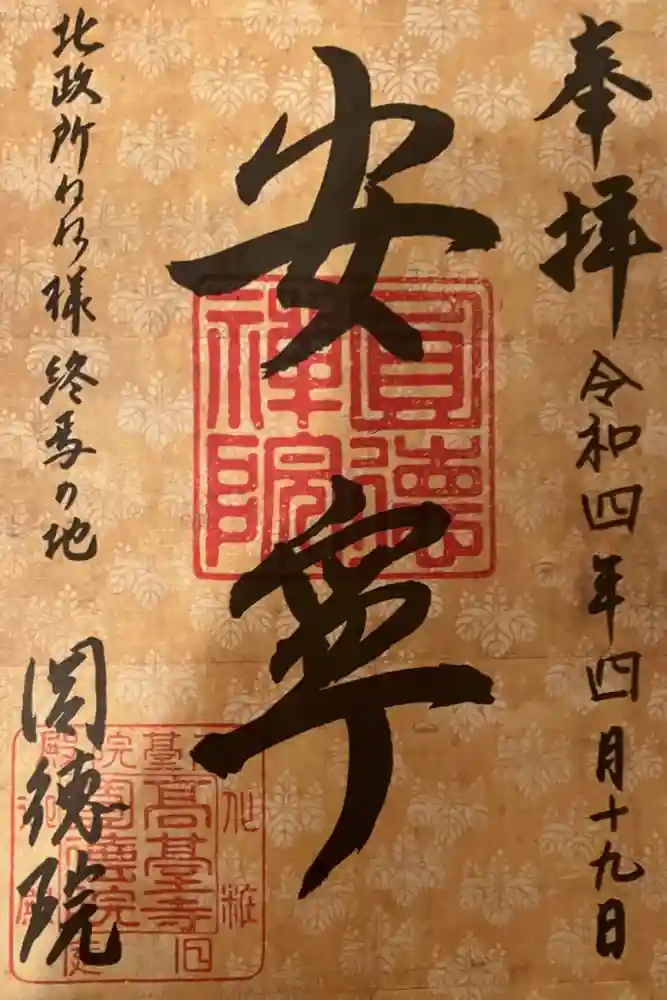 奉拝
令和四年四月十九日
安寧
圓德
禅院
北政所ねね様 終焉の地
圓徳院
高臺寺
圓德院